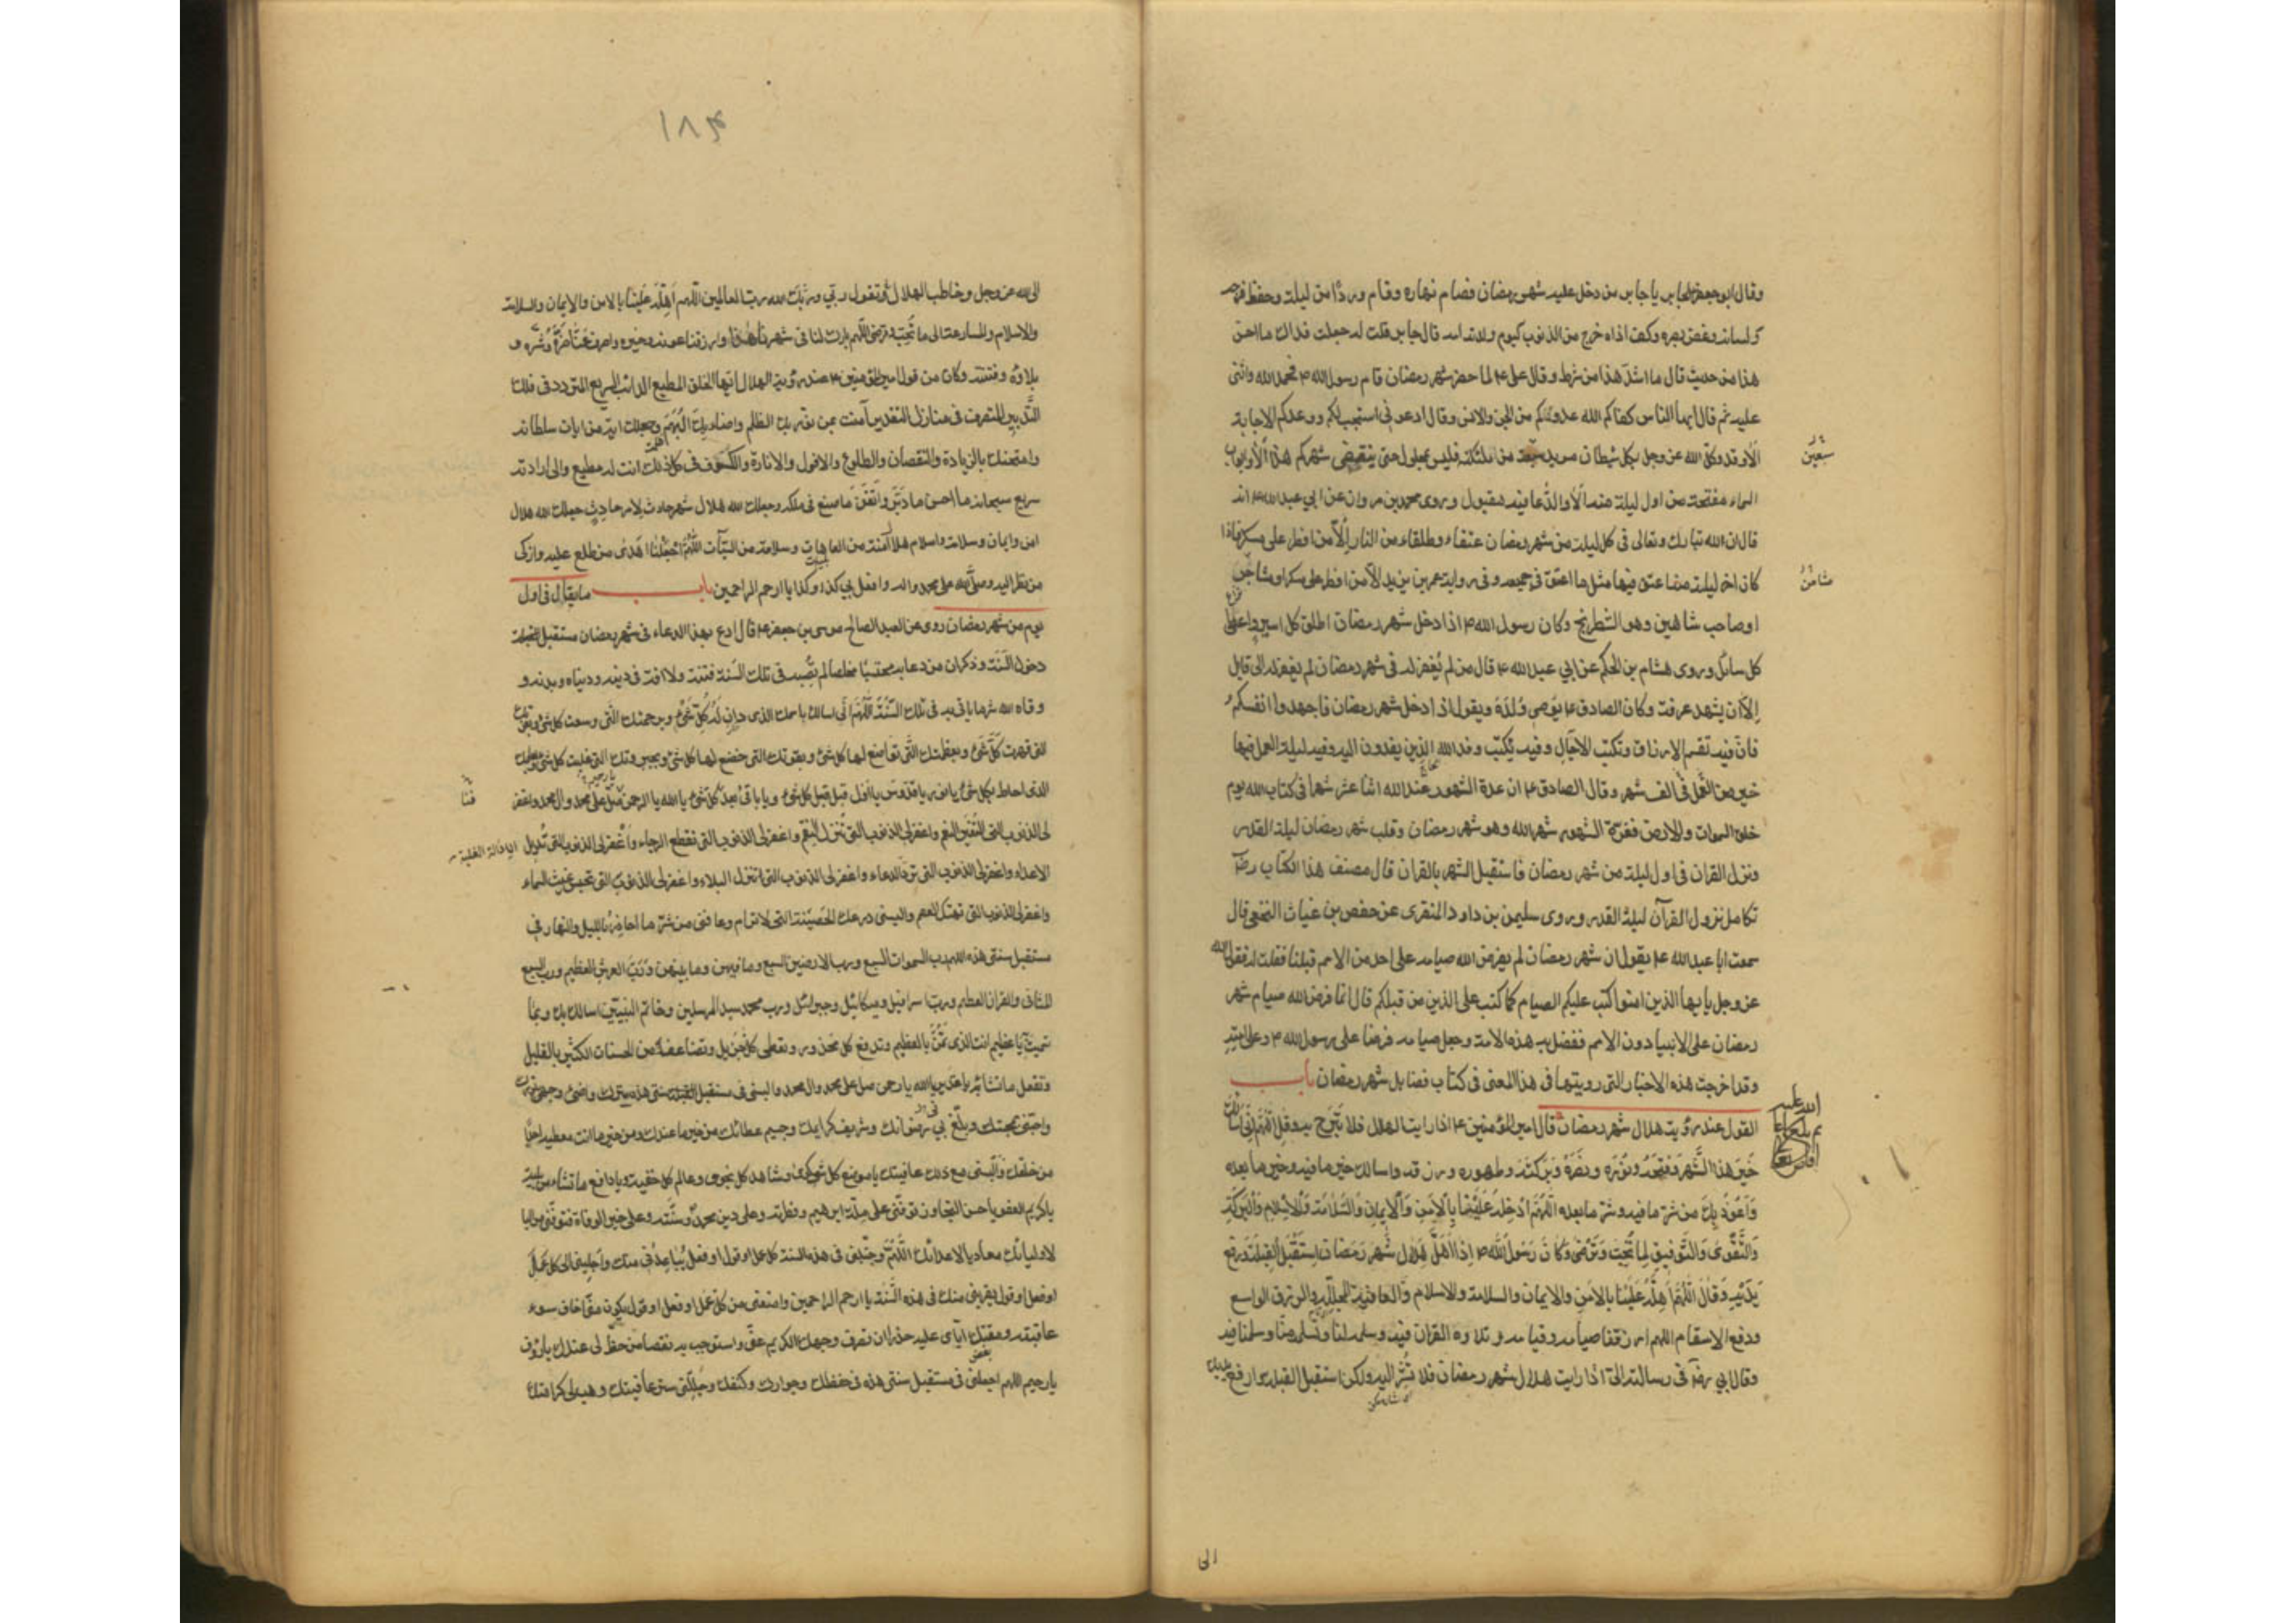 وقال ابو جعفر لجابر يا جابر من دخل عليه شهر رمضان فصام نهاره وقام وردا من ليلته وحفظ فرجه
ولسانه وغض بصره وكف اذاه خرج من الذنوب كيوم ولدته امه قال جابر قلت له جعلت فداك ما احسن
هذا من حديث قال ما اشد هذا من شرط وقال على ع لما حضر شهر رمضان قام رسول الله ص فحمد الله واثنى
عليه ثم قال ايها الناس كفاكم الله عدوكم من الجن والانس وقال ادعونى استجب لكم ووعدكم الاجابة
الا وقد وكل الله عز وجل بكل شيطان مريد سبعة من ملئكته فليس بمحلول حتى ينقضى شهركم هذا الا وابواب
سبعين
السماء مفتحة من اول ليلة منه الا والدعا فيه مقبول وروى محمد بن مروان عن ابي عبد الله ع انه
قال ان الله تبارك وتعالى فى كل ليلة من شهر رمضان عتقاء وطلقاء من النار الا من افطر على مسكر فاذا
كان اخر ليلة منه اعتق فيها مثل ما اعتق فى جميعه وفى رواية عمر بن يزيد الا من افطر على مسكر او مشاحن
مشاحن
او صاحب شاهين وهو الشطرنج وكان رسول الله ص اذا دخل شهر رمضان اطلق كل اسير واعطى
كل سائل وروى هشام بن الحكم عن ابي عبد الله ع قال من لم يغفر له فى شهر رمضان لم يغفر له الى قابل
الا ان يشهد عرفة وكان الصادق ع يوصى ولده ويقول اذا دخل شهر رمضان فاجهدوا انفسكم
فان فيه تقسم الارزاق وتكتب الاجال وفيه يكتب وفد الله الذين يفدون اليه وفيه ليلة العمل فيها
خير من العمل فى الف شهر وقال الصادق ع ان عدة الشهور عند الله اثنا عشر شهرا فى كتاب الله يوم
خلق السموات والارض فغرة الشهور شهر الله وهو شهر رمضان وقلب شهر رمضان ليلة القدر
ونزل القران فى اول ليلة من شهر رمضان فاستقبل الشهر بالقران قال مصنف هذا الكتاب رضى
تكامل نزول القرآن ليلة القدر وروى سليمن بن داود المنقرى عن حفص بن غياث النخعى قال
سمعت ابا عبد الله ع يقول ان شهر رمضان لم يفرض الله صيامه على احد من الامم قبلنا فقلت له فقول الله
عز وجل يا ايها الذين امنوا كتب عليكم الصيام كما كتب على الذين من قبلكم قال انما فرض الله صيام شهر
رمضان على الانبياء دون الامم ففضل به هذه الامة وجعل صيامه فرضا على رسول الله ص وعلى امته
وقد اخرجت هذه الاخبار التى رويتها فى هذا المعنى فى كتاب فضايل شهر رمضان باب
القول عند رؤية هلال شهر رمضان قال امير المؤمنين ع اذا رايت الهلال فلا تبرح وقل اللهم انى اسالك
خير هذا الشهر وفتحه ونوره ونصره وبركته وطهوره ورزقه واسالك خير ما فيه وخير ما بعده
واعوذ بك من شر ما فيه وشر ما بعده اللهم ادخله علينا بالامن والايمان والسلامة والاسلام والبركة
والتقوى والتوفيق لما تحب وترضى وكان رسول الله ص اذا اهل هلال شهر رمضان استقبل القبلة ورفع
يديه وقال اللهم اهله علينا بالامن والايمان والسلامة والاسلام والعافية المجللة والرزق الواسع
ودفع الاسقام اللهم ارزقنا صيامه وقيامه وتلاوة القران فيه وسلمه لنا وتسلمه منا وسلمنا فيه
وقال ابي رضى فى رسالته الى اذا رايت هلال شهر رمضان فلا تشر اليه ولكن استقبل القبلة وارفع يديك
الى
١٨٤
الى الله عز وجل وخاطب الهلال وتقول ربي وربك الله رب العالمين اللهم اهله علينا بالامن والايمان والسلامة
والاسلام والمسارعة الى ما تحب وترضى اللهم بارك لنا فى شهرنا هذا وارزقنا عونه وخيره واصرف عنا ضره وشره و
بلاؤه وفتنته وكان من قول امير المؤمنين ع عند رؤية الهلال ايها الخلق المطيع الدائب السريع المتردد فى فلك
التدبير المتصرف فى منازل التقدير آمنت بمن نور بك الظلم واضاء بك البهم وجعلك اية من ايات سلطانه
وامتهنك بالزيادة والنقصان والطلوع والافول والانارة والكسوف فى كل ذلك انت له مطيع والى ارادته
سريع سبحانه ما احسن ما دبر واتقن ما صنع فى ملكه وجعلك الله هلال شهر حادث لامر حادث جعلك الله هلال
امن وايمان وسلامة واسلام هلال آمنة من العاهات وسلامة من السيئات اللهم اجعلنا اهدى من طلع عليه وازكى
من نظر اليه وصلى الله على محمد واله وافعل بي كذا وكذا يا ارحم الراحمين باب ما يقال فى اول
يوم من شهر رمضان روى عن العبد الصالح موسى بن جعفر ع قال ادع بهذا الدعاء فى شهر رمضان مستقبل القبلة
دخول السنة وذكر ان من دعا به محتسبا مخلصا لم تصبه فى تلك السنة فتنة ولا افة فى دينه ودنياه وبدنه و
وقاه الله شر ما ياتى به فى تلك السنة اللهم انى اسالك باسمك الذى دان له كل شئ وبرحمتك التى وسعت كل شئ وبعزتك
التى قهرت كل شئ وبعظمتك التى تواضع لها كل شئ وبقوتك التى خضع لها كل شئ وبجبروتك التى غلبت كل شئ وبعلمك
الذى احاط بكل شئ يا نور يا قدوس يا اول قبل كل شئ ويا باقى بعد كل شئ يا الله يا الرحمن صل على محمد وال محمد واغفر
لى الذنوب التى تغير النعم واغفر لى الذنوب التى تنزل النقم واغفر لى الذنوب التى تقطع الرجاء واغفر لى الذنوب التى تديل
الادالة الغلبة
الاعداء واغفر لى الذنوب التى ترد الدعاء واغفر لى الذنوب التى تنزل البلاء واغفر لى الذنوب التى تحبس غيث السماء
واغفر لى الذنوب التى تهتك العصم والبسنى درعك الحصينة التى لا ترام وعافنى من شر ما احاذر بالليل والنهار فى
مستقبل سنتى هذه اللهم رب السموات السبع ورب الارضين السبع وما فيهن وما بينهن ورب العرش العظيم ورب السبع
المثانى والقران العظيم ورب اسرافيل وميكائيل وجبرائيل ورب محمد سيد المرسلين وخاتم النبيين اسالك بك وبما
سميت يا عظيم انت الذى تمن بالعظيم وتدفع كل محذور وتعطى كل جزيل وتضاعف من الحسنات الكثير بالقليل
وتفعل ما تشاء يا قدير يا الله يا رحمن صل على محمد وال محمد والبسنى فى مستقبل سنتى هذه سترك واضئ وجهى بنورك
واحبنى بمحبتك وبلغ بي رضوانك وشريف كرائمك وجسيم عطائك من خير ما عندك ومن خير ما انت معطيه احدا
من خلقك والبسنى مع ذلك عافيتك يا موضع كل شكوى وشاهد كل نجوى وعالم كل خفية ويا دافع ما تشاء من بلية
يا كريم العفو يا حسن التجاوز توفنى على ملة ابرهيم وفطرته وعلى دين محمد وسنته وعلى خير الوفاة فتوفنى مواليا
لاوليائك معاديا لاعدائك اللهم وجنبنى فى هذه السنة كل عمل او قول او فعل يباعدنى منك واجلبنى الى كل عمل
او فعل او قول يقربنى منك فى هذه السنة يا ارحم الراحمين وامنعنى من كل عمل او فعل او قول يكون منى اخاف سوء
عاقبته ومقتك اياى عليه حذرا ان تصرف وجهك الكريم عنى واستوجب به نقصا من حظ لى عندك يا رؤف
يا رحيم اللهم اجعلنى فى مستقبل سنتى هذه فى حفظك وجوارك وكنفك وجللنى ستر عافيتك وهب لى كرامتك